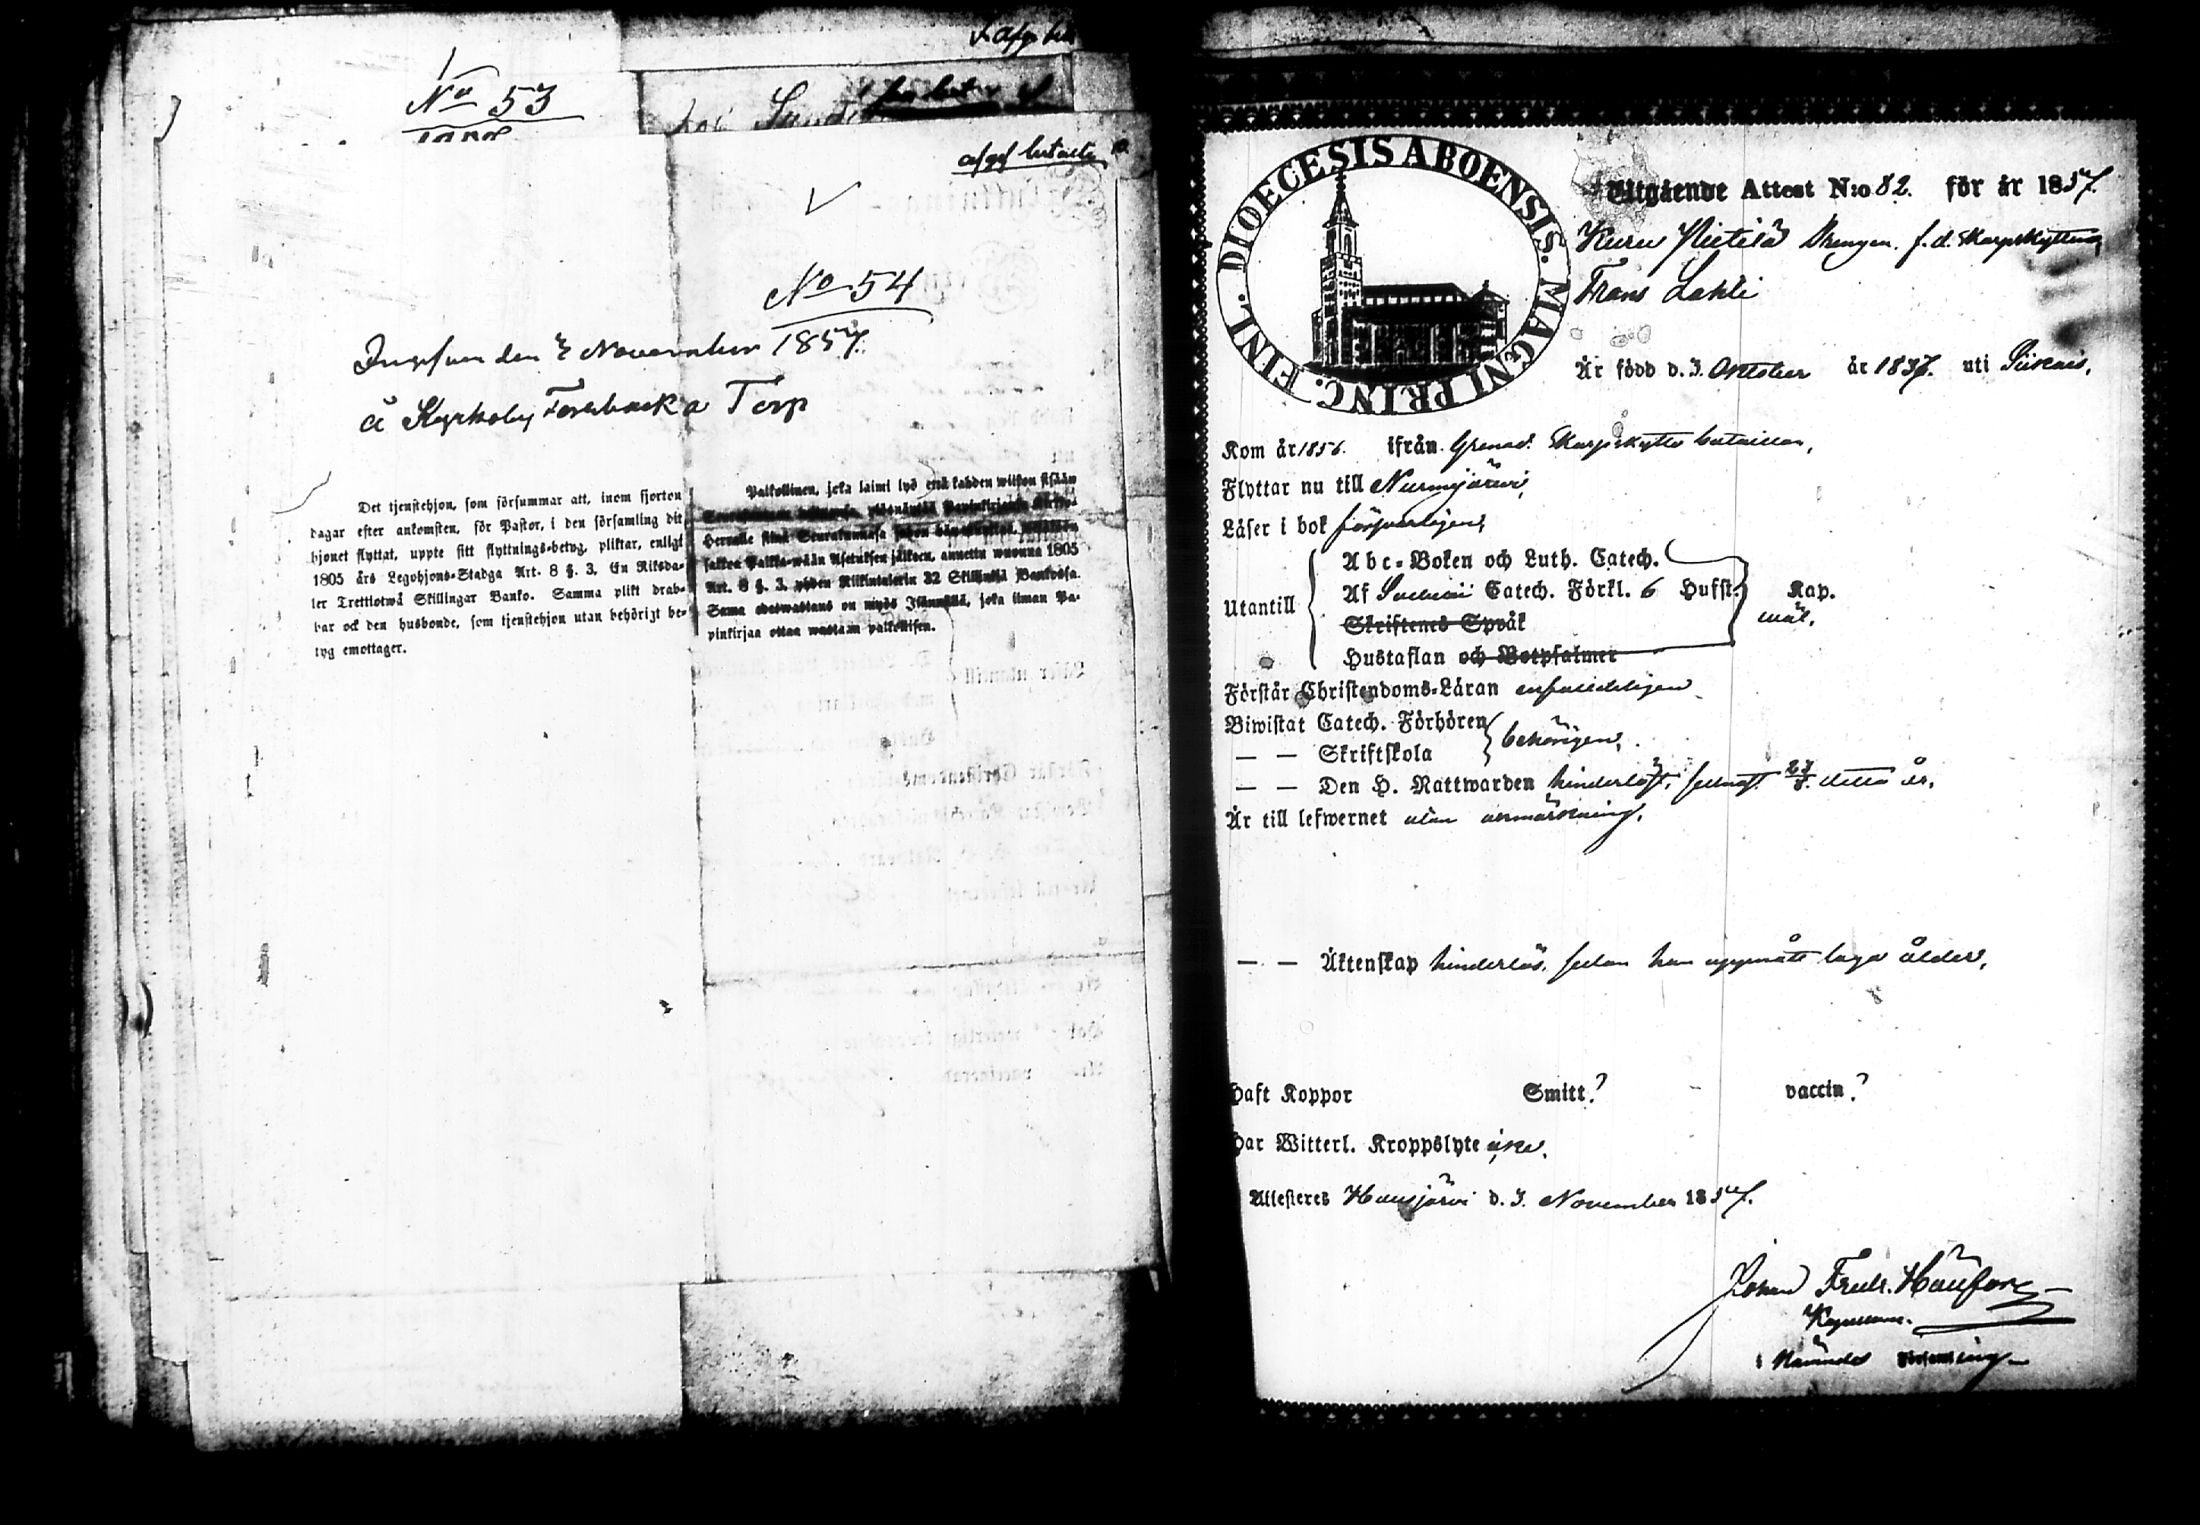 No 53
afgf betalte
No 54
1857
å Kyrkoby Forsbacka Torp
Det tjenstehjon, som försummar att, inom fjorton
dagar efter ankomsten, för Pastor, i den församling dit
hjonet flyttat, uppte sitt flyttnings-betyg, pliktar, enligt
1805 års Legohjons-Stadga Art. 8 §. 3, En Riksda-
ler Trettiotwå Skillingar Banko. Samma plikt drab-
bar ock den husbonde, som tjenstehjon utan behörigt be-
tyg emottager.
Palkollinen, joka laimi lyö että kahden wiikon sisään
Herralle siinä Seurakunnasa johon hän
Palkka-wään Asetuksen jälkeen, annettu wuonna 1805
Art. 8 §. 3. yhden Riikintalerin 32 Skillinkiä Bankosa.
Sama edeswastaus on myös Isännällä, joka ilman Pa-
pinkirjaa ottaa wastaan palkollisen.
DIOECESIS ABOENSIS. MAGNI PRINC. FINL.
Utgående Attest N:o 82. för år 1857.
Kuru Pietilä Drengen f. d. Skarpskytten
Frans Lahti
Är född d. 3. Oktober år 1837. uti Siikais,
Kom år 1856. ifrån Grenad. Skarpskytte bataillon,
Flyttar nu till Nurmijärvi,
Läser i bok försvarligen,
Abc-Boken och Luth. Catech.
Utantill Af Catech. Förkl. 6 Hufst. Kap.
Skriftenes Språk
Hustaflan och Botpsalmer
Förstår Christendoms-Läran enfaldeligen
Biwistat Catech. Förhören behörigen,
— — Skriftskola
— — Den H. Nattwarden hinderlöst, senast 23/8. detta år.
Är till lefwernet utan anmärkning.
— — Äktenskap hinderlös, sedan han uppnått laga ålder,
Haft Koppor Smitt. ? vaccin. ?
Har Witterl. Kroppslyte icke.
Attesteras Hausjärvi d. 3. November 1857.
Johan Fredr.